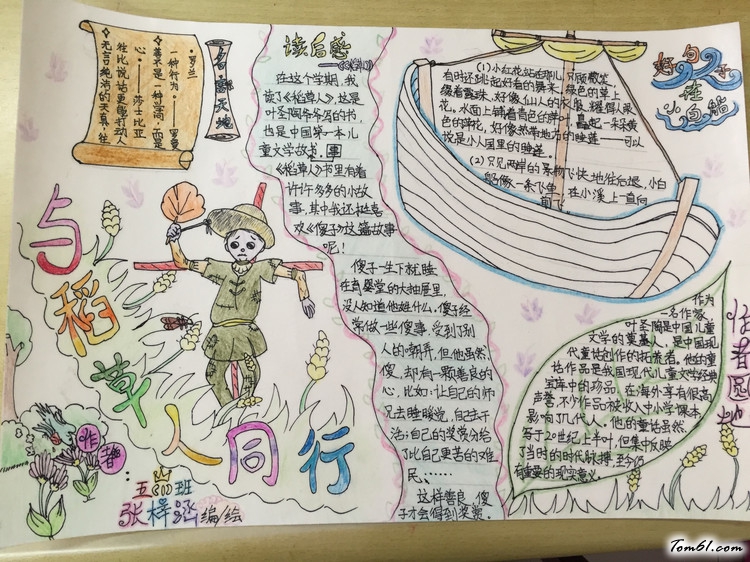 名言天地
·罗兰
一种行为。——罗曼
善不是一种学问，而是
心。——莎士比亚
往比说话更能打动人
◇无言纯洁的天真，往
与稻草人同行
作者：
五(四)班
张梓涵编绘
读后感
在这个学期，我
读了《稻草人》，这是
叶圣陶爷爷写的书，
也是中国第一本儿
童文学故书。
《稻草人》书里有着
许许多多的小故
事，其中我还挺喜
欢《傻子》这篇故事
呢！
傻子一生下就睡
在育婴堂的大抽屉里，
没人知道他姓什么，傻子经
常做一些傻事，受到了别
人的嘲弄，但他虽然
傻，却有一颗善良的
心，比如：让自己的师
兄去睡睡觉，自己去干
活；自己的奖赏分给
了比自己更苦的难
民、……
这样善良的傻
子才会得到奖赏。
好句子在小白船
(1)小红花站在那儿，只顾微笑，
有时还跳起好看的舞来。绿色的草上
缀着露珠，好像仙人的衣服，耀得人眼
花。水面上铺着青色的萍叶，矗起一朵朵黄
色的萍花，好像热带地方的睡莲——可以
说是小人国里的睡莲。
(2)只见两岸的景物飞快地往后退，小白
船像一条飞鱼，在小溪上一直向
前
作者园地
作为
一名作家，
叶圣陶是中国儿童
文学的奠基人，是中国现
代童话创作的拓荒者。他的童
话作品是我国现代儿童文学经典
宝库中的珍品，在海外享有很高
声誉，不少作品被收入中小学课本，
影响了几代人，他的童话虽然
写于20世纪上半叶，但集中反映
了当时的时代脉搏，至今仍
有重要的现实意义。
Tom61.com